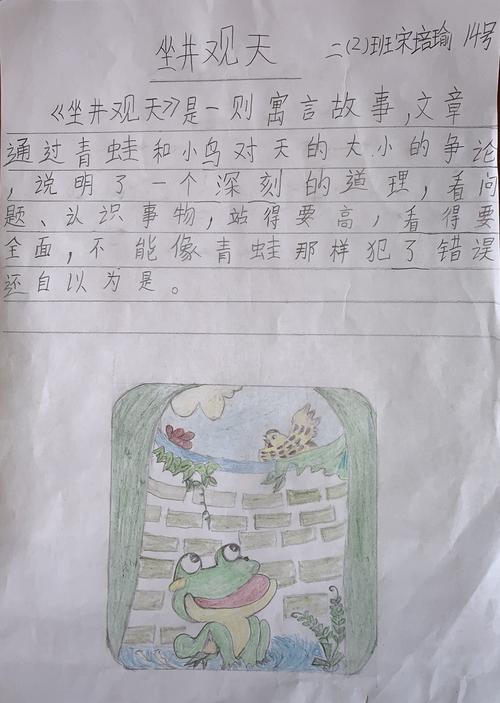 坐井观天
二(2)班宋培瑜 14号
《坐井观天》是一则寓言故事,文章
通过青蛙和小鸟对天的大小的争论
,说明了一个深刻的道理,看问
题、认识事物,站得要高,看得要
全面,不能像青蛙那样犯了错误
还自以为是。